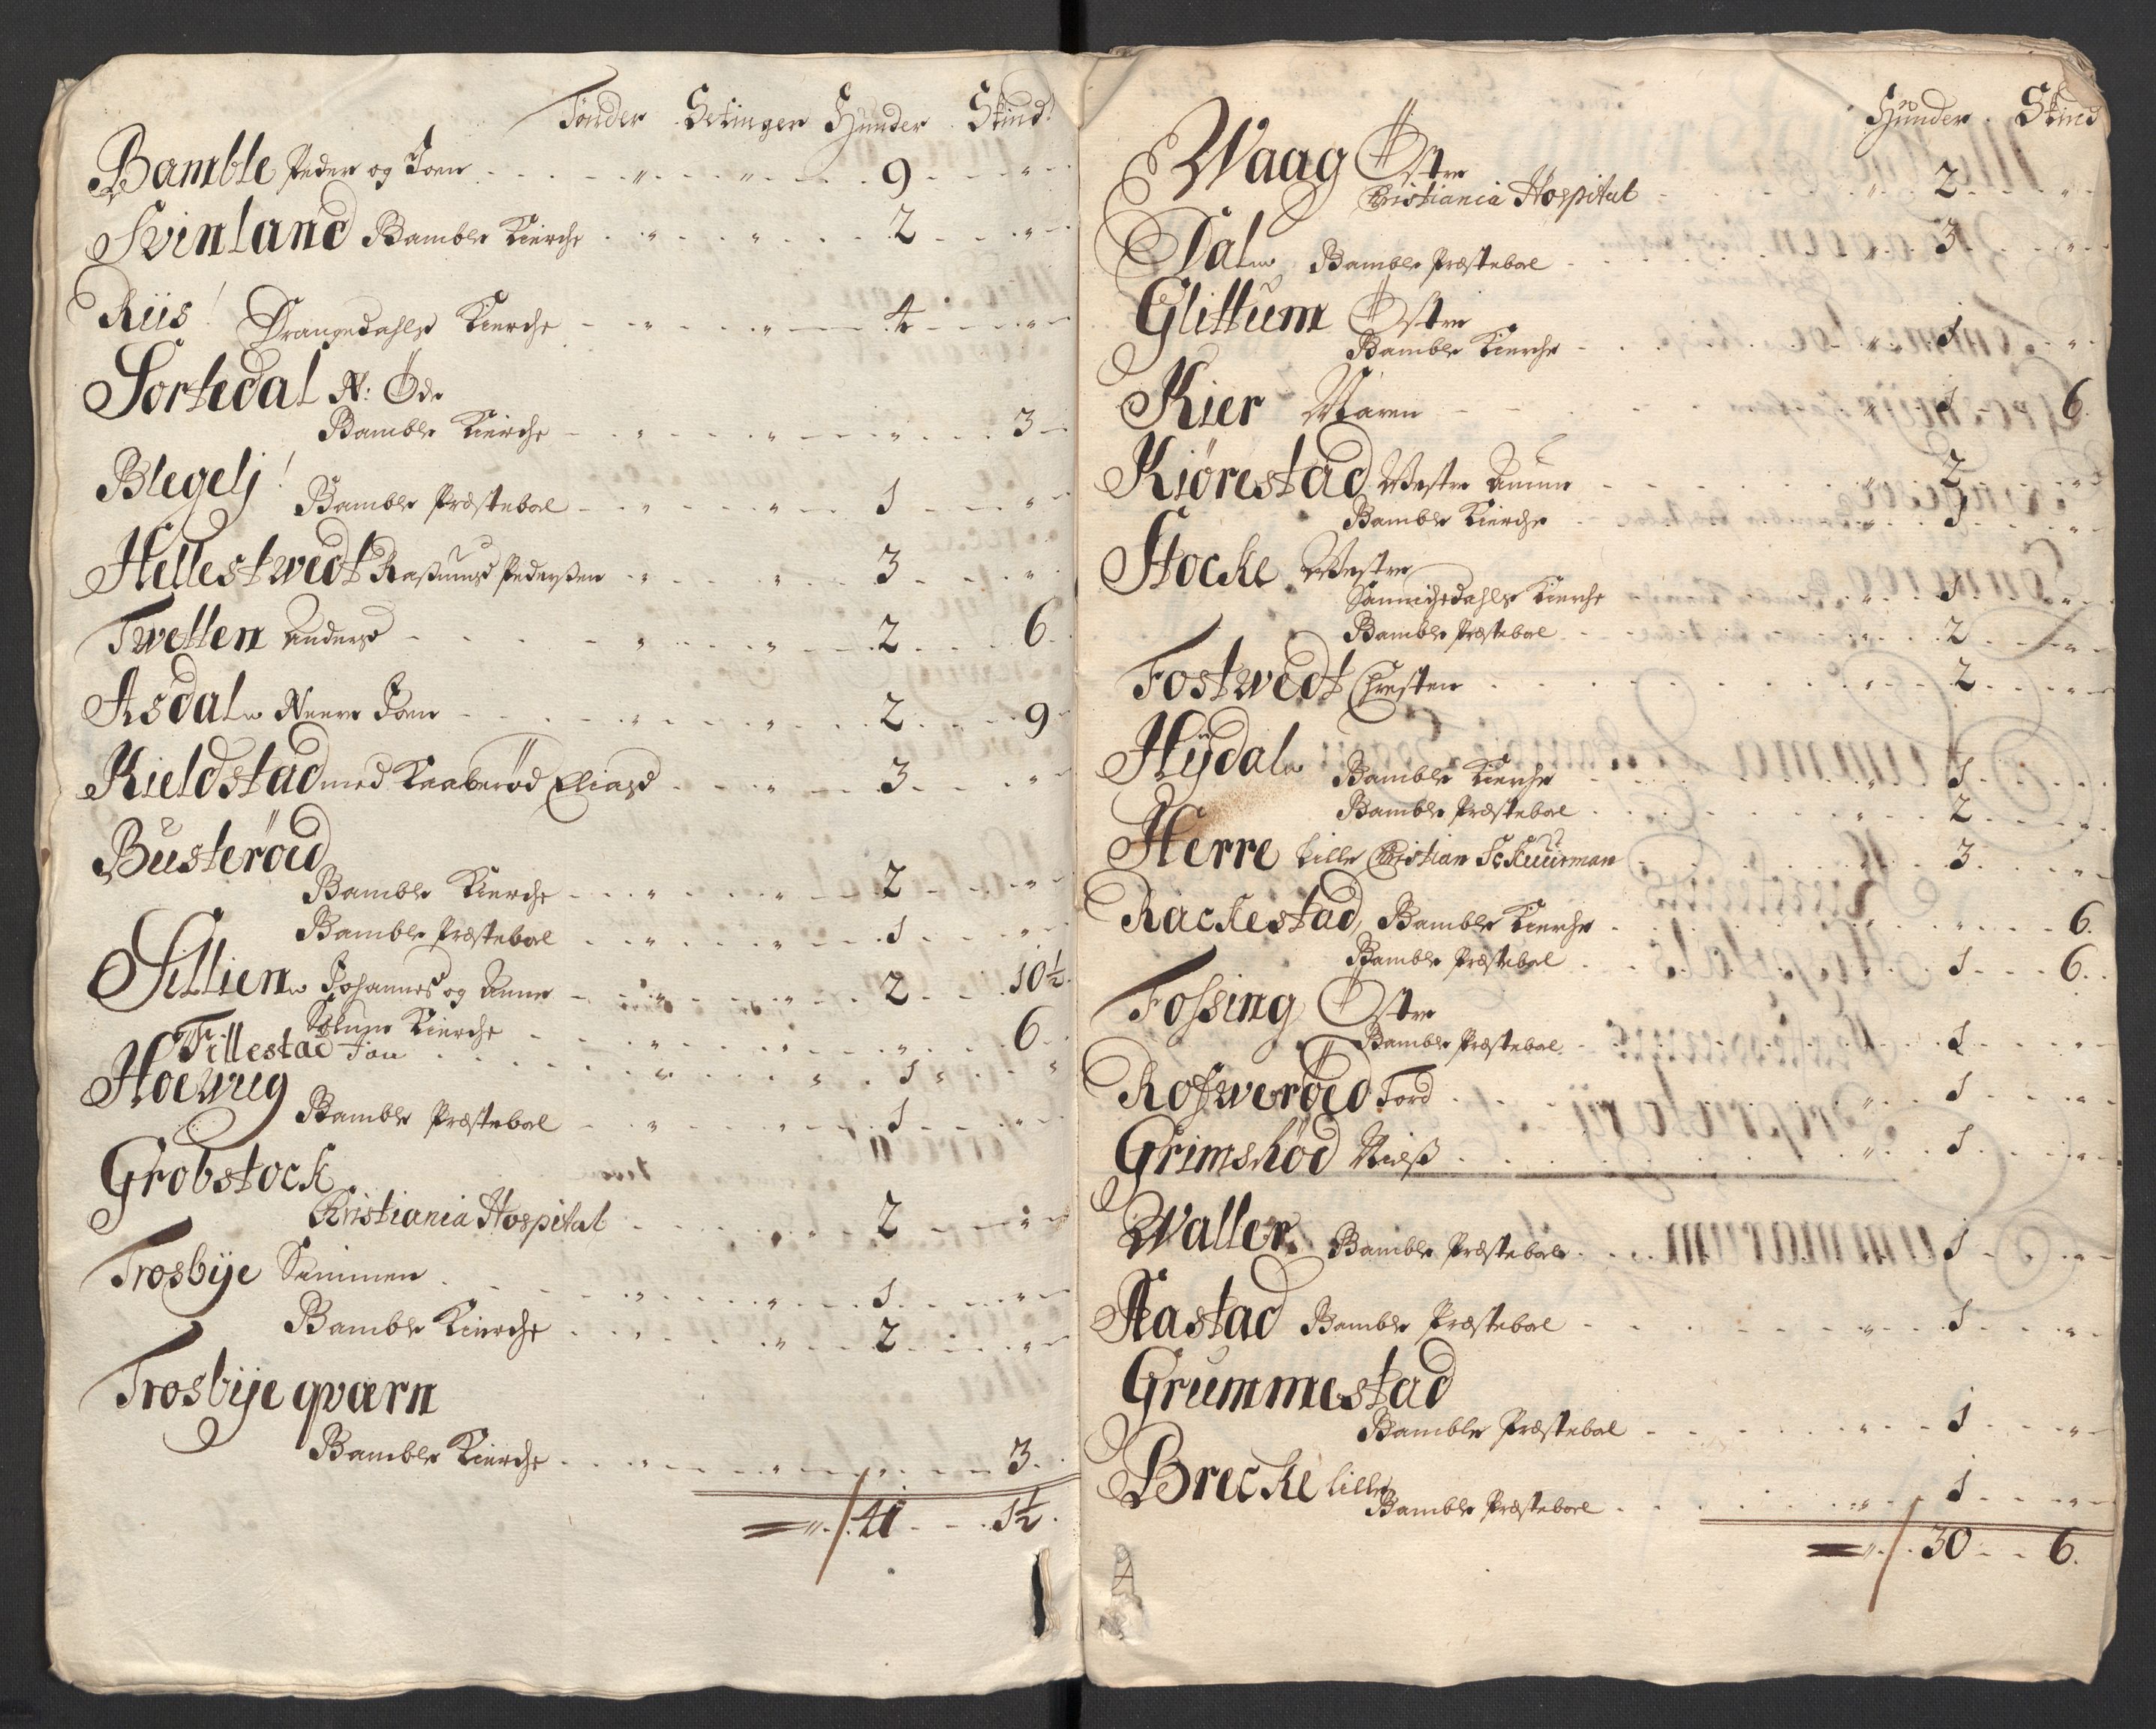 Tønder Setinger Hunder Skind
Bamble Peder og Joen . . . " . . " . . 9 . . "
Svinland Bamble Kierche . " . . " . . 2 . . "
Riis Drangedahls Kierche - " . . " . . 4 . . "
Sortedal N: Øde
Bamble Kierche - " . . " . . " . . 3
Blegelj
Bamble Præstebol - " . . " . . 1 . . "
Hellestwedt Rasmus Pedersen . " . . " . . 3 . . "
Twetten Anders - " . . " . . 2 . . 6
Asdal Neere Joen - " . . " . . 2 . . 9
Kieldstad med Kaaberød Elias . . " . . 3 . . "
Busterøed
Bamble Kierche - " . . " . . 2 . . "
Bamble Præstebol . " . . " . . 1 . . "
Sillien Johannes og Anne - " . . " . . 2 . . 10½
Solum Kierche - " . . " . . " . . 6
Tillestad Jon . . " . . " . . 1 . . "
Hoewiig
Bamble Præstebol - " . . " . . 1 . . "
Grobstock
Christiania Hospital . . " . . 2 . . "
Trosbije Simmen . " . . " . . 1 . . "
Bamble Kierche . " . . " . . 2 . . "
Trosbije qværn
Bamble Kierche . " . . " . . " . . 3
= " . 41 . . 1½
Hunder . Skind
Waag Østre
Christiania Hospital . . " . . 2 . . "
Dal Bamble Præstebol . . " . . 3 . . "
Glittum Østre
Bamble Kierche . . " . . 1 . . "
Kier Maren . . " . . 1 . . 6
Kiørestad Westre Amun . . " . . 2 . . "
Bamble Kierche . . " . . 1 . . "
Stocke Westre
Sannichedahls Kierche . . " . . 1 . . "
Bamble Præstebol . . " . . 2 . . "
Fostwedt Chresten . . " . . 2 . . "
Hydal Bamble Kierche . . " . . 1 . . "
Bamble Præstebol . . " . . 2 . . "
Herre Lille Christian Schuurman . . " . . 3 . . "
Rackestad Bamble Kierche . . " . . " . . 6
Bamble Præstebol . . " . . 1 . . 6
Fossing Østre
Bamble Præstebol . . " . . 1 . . "
Roswerøed Tord . . " . . 1 . . "
Grimshød Nielß . . " . . 1 . . "
Waller Bamble Præstebol . . " . . 1 . . "
Aastad Bamble Præstebol . . " . . 1 . . "
Grummestad
Bamble Præstebol . . " . . 1 . . "
Brecke lille
Bamble Præstebol . . " . . 1 . . "
= " . 30 . . 6